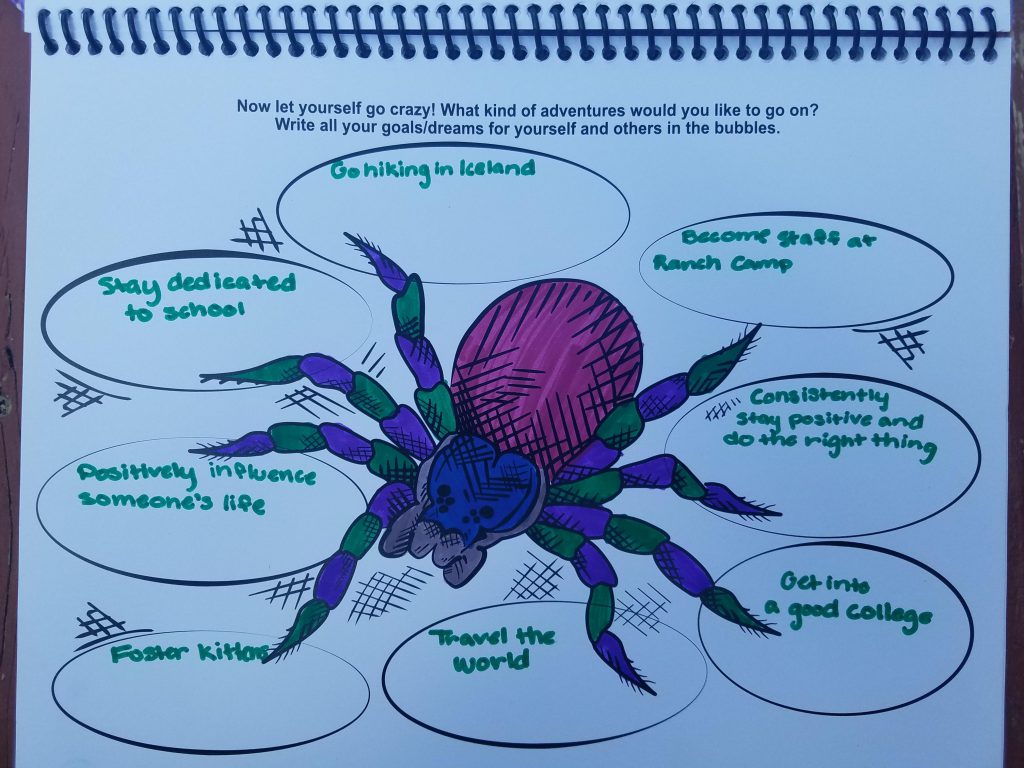 Now let yourself go crazy! What kind of adventures would you like to go on?
Write all your goals/dreams for yourself and others in the bubbles.
Go hiking in Iceland
Become staff at
Ranch Camp
Stay dedicated
to school
Consistently
stay positive and
do the right thing
Positively influence
someone's life
Get into
a good college
Foster Kittens
Travel the
World